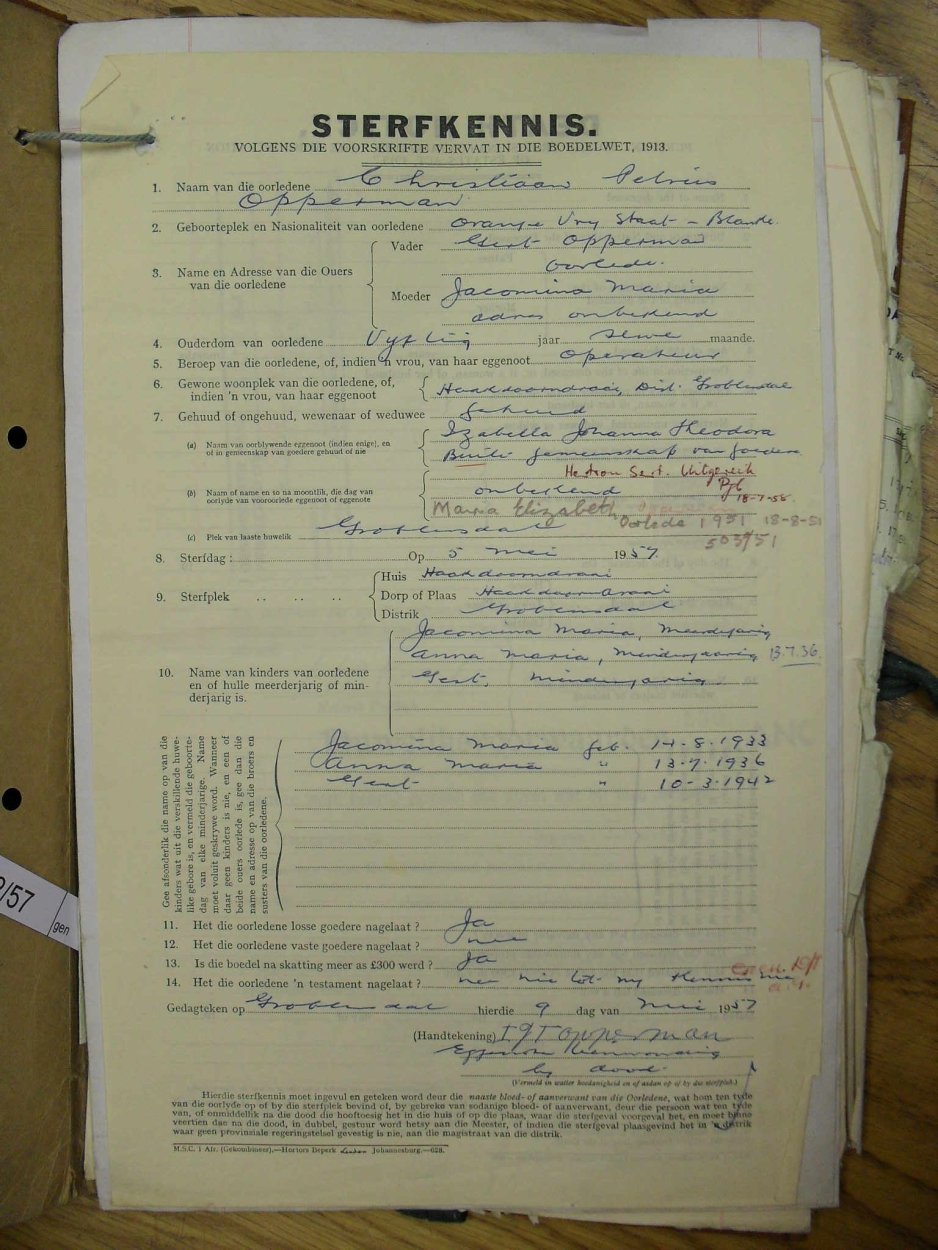 STERFKENNIS.
VOLGENS DIE VOORSKRIFTE VERVAT IN DIE BOEDELWET, 1913.
1. Naam van die oorledene Christiaan Petrus
Opperman
2. Geboorteplek en Nasionaliteit van oorledene Oranje Vry Staat - Blanke.
3. Name en Adresse van die Ouers van die oorledene
Vader Gert Opperman
Oorlede.
Moeder Jacomina Maria
adres onbekend
4. Ouderdom van oorledene Vyftig jaar sewe maande.
5. Beroep van die oorledene, of, indien 'n vrou, van haar eggenoot operateur
6. Gewone woonplek van die oorledene, of, indien 'n vrou, van haar eggenoot Haakdoorndraai, Dist. Groblersdal
7. Gehuud of ongehuud, wewenaar of weduwee Gehuud
(a) Naam van oorblywende eggenoot (indien enige), en of in gemeenskap van goedere gehuud of nie
Izabella Johanna Theodora
Buite gemeenskap van goedere
Hertrou Sert. Uitgereik
(b) Naam of name en so na moontlik, die dag van oorlyde van vooroorlede eggenoot of eggenote
onbekend
18-7-58.
Maria Elizabeth
Oorlede 1951 18-8-51
(c) Plek van laaste huwelik Groblersdal
5039/51
8. Sterfdag: Op 5 Mei 1957
9. Sterfplek
Huis Haakdoorndraai
Dorp of Plaas Haakdoorndraai
Distrik Groblersdal
10. Name van kinders van oorledene en of hulle meerderjarig of minderjarig is.
Jacomina Maria, Meerderjarig
Anna Maria, Minderjaarig 13.7.36.
Gert, Minderjarig
Gee afsonderlik die name op van die kinders wat uit die verskillende huwelike gebore is, en vermeld die geboortedag van elke minderjarige. Name moet voluit geskrywe word. Wanneer daar geen kinders is nie, en een of beide ouers oorlede is, gee dan die name en adresse op van die broers en susters van die oorledene.
Jacomina Maria geb. 14-8-1933
Anna Maria " 13-7-1936
Gert " 10-3-1942
11. Het die oorledene losse goedere nagelaat? Ja
12. Het die oorledene vaste goedere nagelaat? nee
13. Is die boedel na skatting meer as £300 werd? Ja
14. Het die oorledene 'n testament nagelaat? nee nie tot my kennis nie
Gedagteken op Groblersdal hierdie 9 dag van Mei 1957
(Handtekening) I J T Opperman
Eggenote teenwoordig
by dood.
(Vermeld in watter hoedanigheid en of aedan op of by die sterfplek.)
Hierdie sterfkennis moet ingevul en geteken word deur die naaste bloed- of aanverwant van die Oorledene, wat hom ten tyde
van die oorlyde op of by die sterfplek bevind of, by gebreke van sodanige bloed- of aanverwant, deur die persoon wat ten tyde
van, of onmiddelik na die dood die hooftoesig het in die huis of op die plaas, waar die sterfgeval voorgeval het, en moet binne
veertien dae na die dood, in dubbel, gestuur word hetsy aan die Meester, of indien die sterfgeval plaasgevind het in 'n distrik
waar geen provinsiale regeringstelsel gevestig is nie, aan die magistraat van die distrik.
M.S.C. 1 Afr. (Gekombineer).—Hortors Beperk Johannesburg.—028.
/57
gen